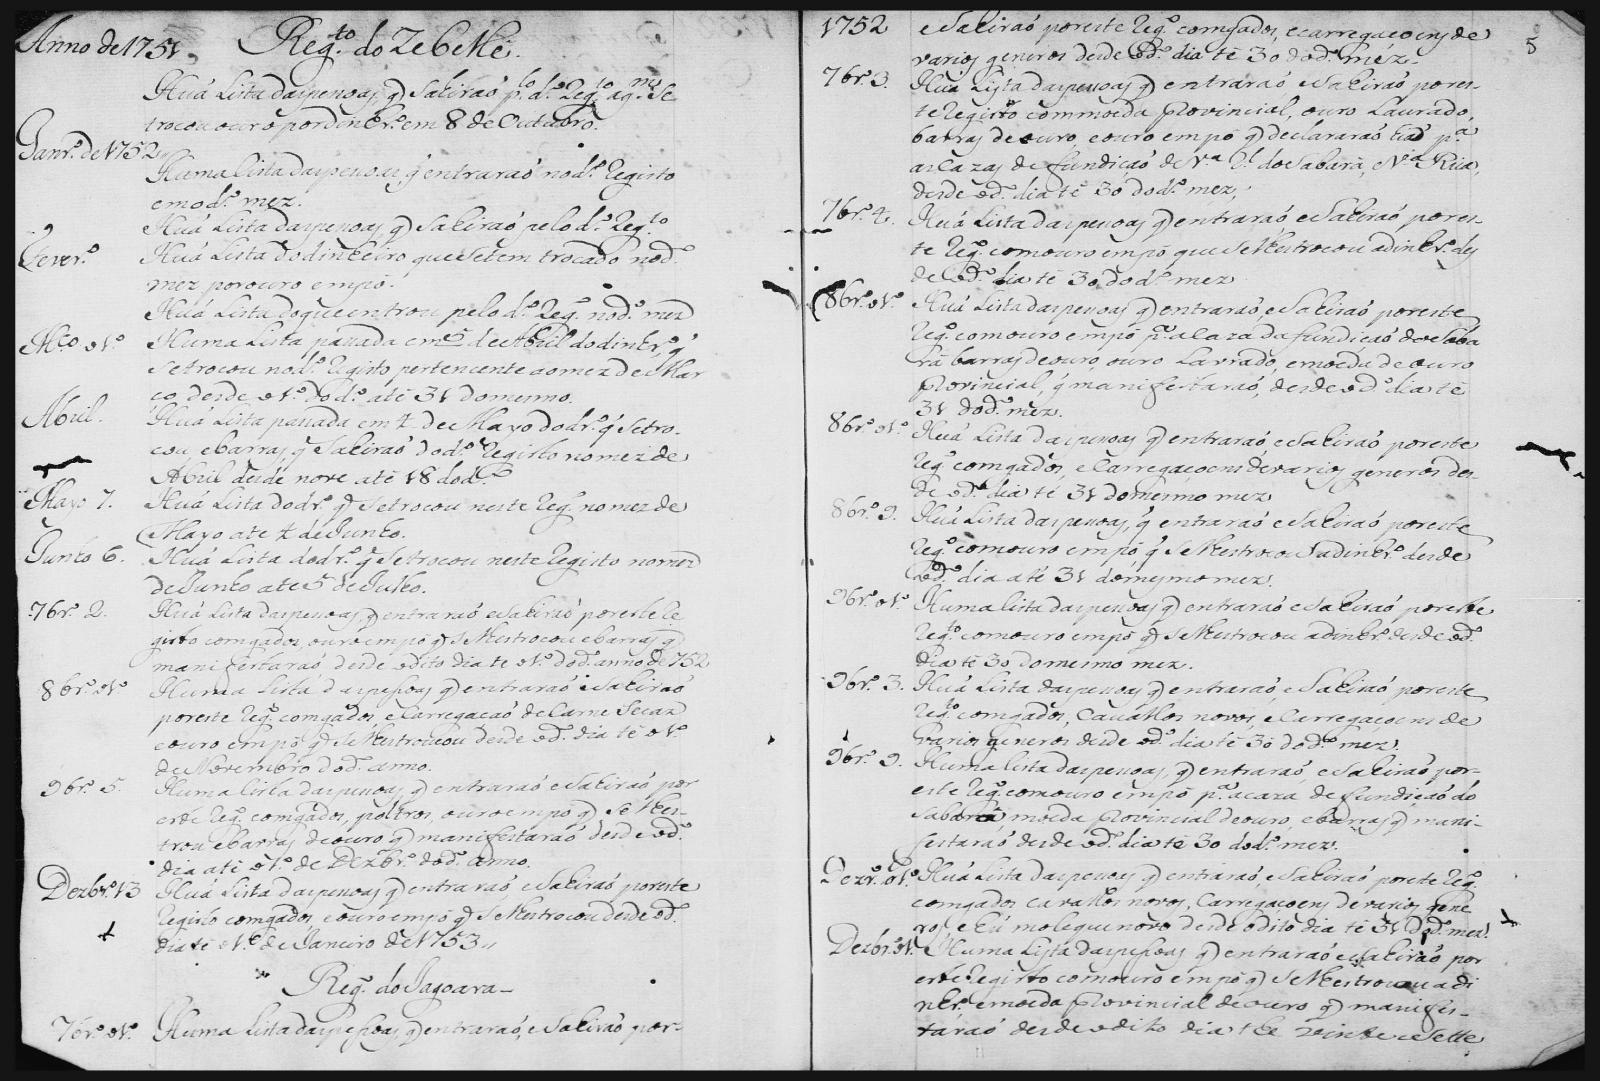 Anno de 1751. Reg.to do Zebelhé.
Huá Lista das pesoas, q̃ Sahiraõ p.lo d.º Reg.to ag.m Se
trocou ouro por dinhr.º em 8 de Outubro.
Janr.º de 1752
Huma lista das pesoas q̃ entraraõ no d.º Registo
em o d.º mez.
Huá Lista das pesoas, q̃ Sahiraõ pelo d.º Reg.to
Fever.º Huá Lista do dinheiro que Se tem trocado no d.º
mez por ouro em pó.
Huá Lista do que entrou pelo d.º Reg.º no d.º mez
M.ço o 1.º Huma Lista pasada em 5 de Abril do dinhr.º q̃
Se trocou no d.º Registo pertencente ao mez de Mar
ço, desde o 1.º do d.º até 31 do mesmo.
Abril. Huá Lista pasada em 4 de Mayo do dr.º q̃ Se tro-
cou, e barras, q̃ Sahiraõ do d.º Registo no mez de
Abril desde nove até 18 do d.º
Mayo 7. Huá Lista do dr.º q̃ Se trocou neste Reg.º no mez de
Mayo ate 4 de Junho.
Junho 6. Huá Lista do dr.º q̃ Se trocou neste Registo no mez
de Junho ate 5 de Julho.
7br.º 2. Huá Lista das pesoas, q̃ entraraõ e Sahiraõ por este Re
gisto com gados, ouro em pó q̃ Se lhes trocou e barras q̃
manifestaraõ desde o dito dia te o 1.º do d.º anno de 752
8br.º o 1.º Huma Lista das pessoas q̃ entraraõ e Sahiraõ
por este Reg.º com gados, e Carregacaõ de Carne Seca
e ouro em pó q̃ Se lhes trocou desde o d.º dia té o 1.º
de Novembro do d.º anno.
9br.º 5. Huma lista das pesoas, q̃ entraraõ e Sahiraõ por
este Reg.º com gados, poltros, ouro em pó q̃ Se lhes
trou e barras de ouro q̃ manifestaraõ desde o d.º
dia até o 1.º de Dezbr.º do d.º anno.
Dezbr.º 13 Huá Lista das pesoas q̃ entraraõ, e Sahiraõ por este
Registo com gados, e ouro em pó q̃ Se lhes trocou desde o d.º
dia té o 1.º de Janeiro de 1753.
Reg.º do Jagoara
7br.º o 1.º Huma Lista das pessoas, q̃ entraraõ, e Sahiraõ por-
1752 e Sahiraõ por este Reg.º com gados, e carregacoens de
varios generos desde o d.º dia té 30 do d.º mez.
5
7br.º 3. Huá Lista das pesoas q̃ entraraõ e Sahiraõ por es-
te Registo com moeda Provincial, ouro Laurado,
barras de ouro, e ouro em pó q̃ declararaõ p.ª
as Cazas de fundiçaõ de V.ª R.l do Sabará, e V.ª Rica,
desde o d.º dia té 30 do d.º mez,
7br.º 4. Huá Lista das pesoas, q̃ entraraõ e Sahiraõ por es-
te Reg.º com ouro em pó que Se lhes trocou a dinhr.º des
de o d.º dia té 30 do d.º mez
8br.º o 1.º Huá Lista das pesoas q̃ entraraõ, e Sahiraõ por este
Reg.º com ouro em pó p.ª a Caza da fundiçaõ do Saba
rá barras de ouro, ouro Lavrado, e moeda de ouro
Provincial, q̃ manifestaraõ, desde o d.º dia té
31 do d.º mez.
8br.º o 1.º Huá Lista das pesoas q̃ entraraõ e Sahiraõ por este
Reg.º com gados, e Carregacoens de varios generos des-
de o d.º dia té 31 do mesmo mez
8br.º 9. Huá Lista das pesoas, q̃ entraraõ e Sahiraõ por este
Reg.º com ouro em pó q̃ Se lhes trocou a dinhr.º desde
o d.º dia até 31 do mesmo mez.
9br.º o 1.º Huma lista das pesoas q̃ entraraõ e Sahiraõ por este
Reg.to com ouro em pó q̃ Se lhes trocou a dinhr.º desde o d.º
dia té 30 do mesmo mez.
9br.º 3. Huá Lista das pesoas q̃ entraraõ, e Sahiraõ por este
Reg.to com gados, Cavallos novos, e Carregacoens de
varios generos desde o d.º dia té 30 do d.º mez.
9br.º 9. Huma lista das pesoas, q̃ entraraõ, e Sahiraõ por-
este Reg.º com ouro em pó p.ª a caza de fundiçaõ do
Sabará moeda Provincial de ouro, e barras q̃ mani-
festaraõ desde o d.º dia té 30 do d.º mez.
Dezr.º o 1.º Huá Lista das pesoas q̃ entraraõ, e Sahiraõ por ete Reg.º
com gados cavallos novos, Carregacoens de varios gene
ros, e hú moleque novo desde o dito dia té 31 do d.º mez.
Dezbr.º o 1.º Huma Lista das pessoas q̃ entraraõ e Sahiraõ por
este Registo com ouro em pó q̃ Se lhes trocou a di
nhr.º e moeda Provincial de ouro q̃ manifes-
taraõ desde o dito dia the vinte e Sette